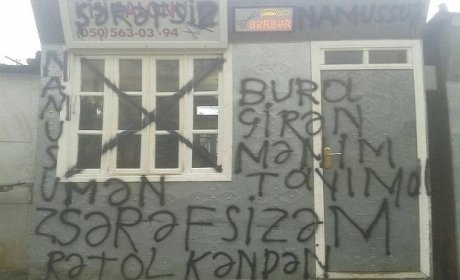 ŞƏRƏFSİZ
(050) 563-03-94
BƏRBƏR
NAMUSSUZ
NAMUSUZ
BURA
GİRƏN
MƏNİM
TAYIMDI
MƏN
ŞƏRƏFSİZƏM
RƏTOL KƏNDƏN